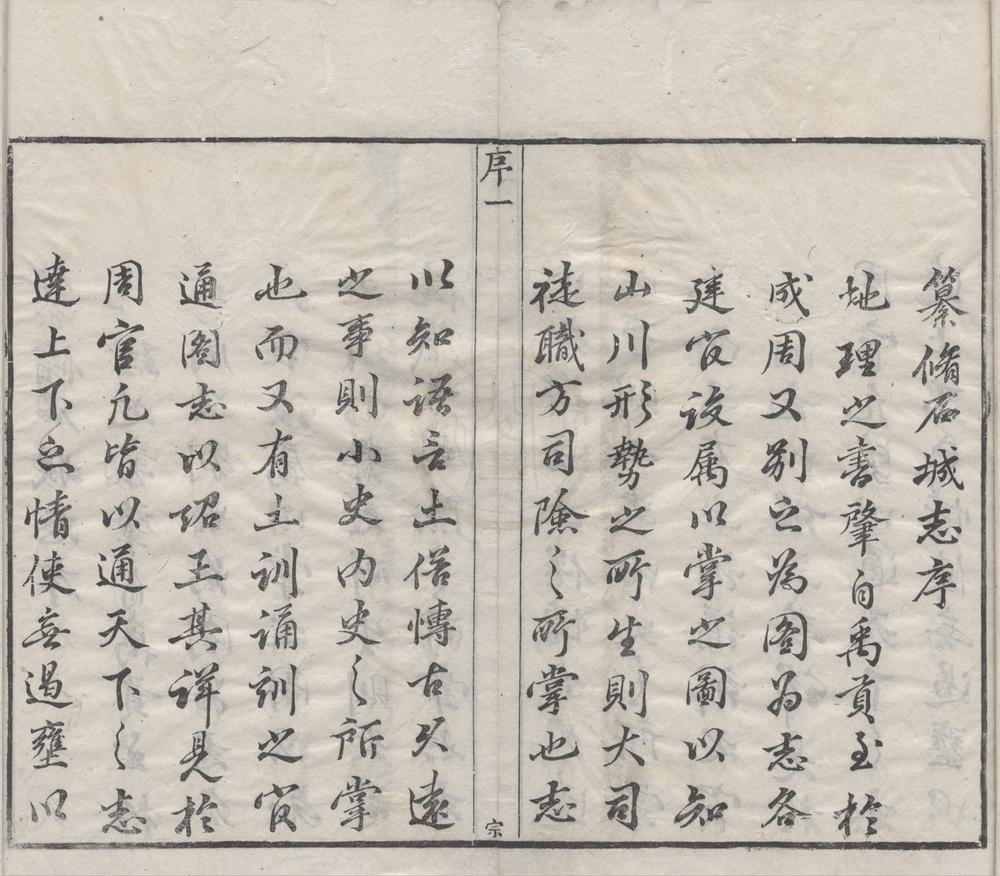 纂脩石城志序
地理之書肇自禹貢至於
成周又别之為圖為志各
建官設属以掌之圖以知
山川形勢之所生則大司
徒職方司險之所掌也志
序一
宗
以知語言土俗博古久遠
之事則小史内史之所掌
也而又有土訓誦訓之官
通圖志以詔王其詳見於
周官凢皆以通天下之志
達上下之情使無遏壅以